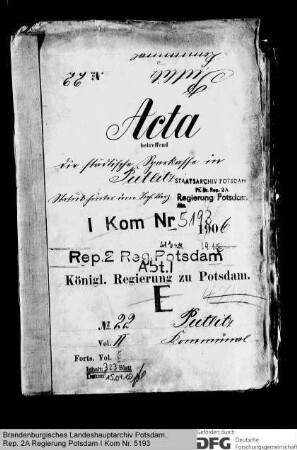 No 22
Putlitz
Communal
Acta
betreffend
die städtische Sparkasse in
Putlitz
STAATSARCHIV POTSDAM
Pr. Br. Rep. 2A
Regierung Potsdam
I Kom Nr 5193
1906
Rep. 2 Reg. Potsdam
Abt. I
Königl. Regierung zu Potsdam.
E
No 22
Putlitz
Vol. II
Communal
Forts. Vol. E
Inhalt: 323 Blatt
Brandenburgisches Landeshauptarchiv Potsdam,
Rep. 2A Regierung Potsdam I Kom Nr. 5193
Gefördert durch
DFG Deutsche
Forschungsgemeinschaft